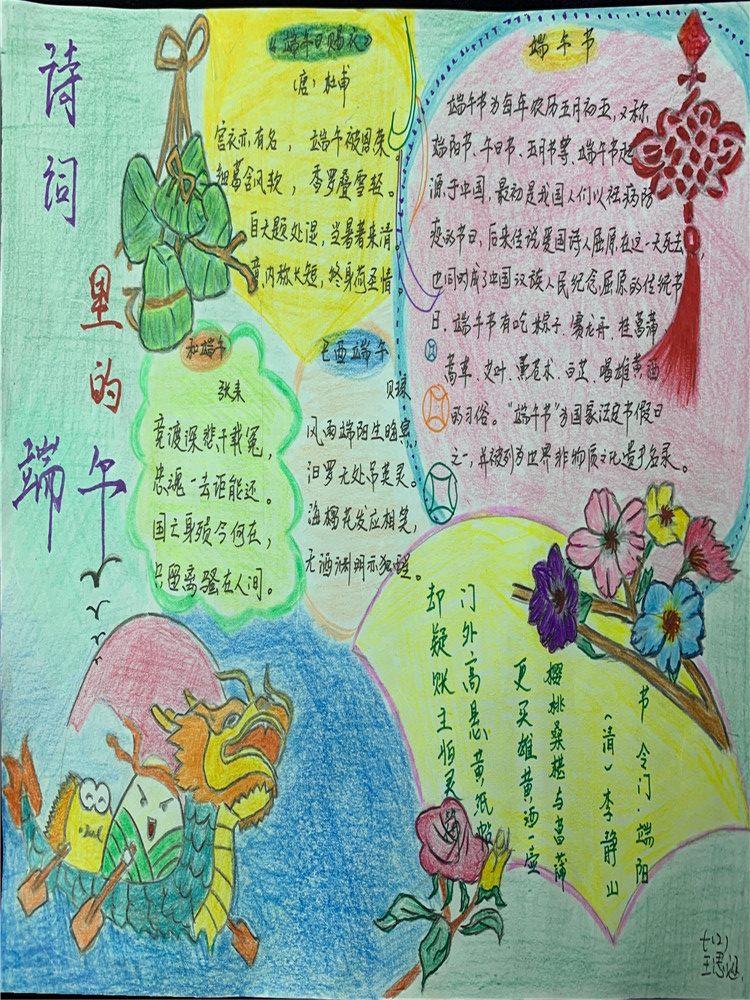 诗词
里的
端午
《端午日赐衣》
(唐)杜甫
宫衣亦有名，端午被恩荣。
细葛含风软，香罗叠雪轻。
自天题处湿，当暑著来清。
意内称长短，终身荷圣情。
端午节
端午节为每年农历五月初五，又称
端阳节、午日节、五月节等，端午节起
源于中国，最初是我国人们以祛病防
疫的节日，后来传说爱国诗人屈原在这一天死去，
也同时成了中国汉族人民纪念屈原的传统节
日，端午节有吃粽子、赛龙舟、挂菖蒲
蒿草、艾叶、薰苍术、白芷、喝雄黄酒
的习俗。"端午节"为国家法定节假日
之一，并被列为世界非物质文化遗产名录。
和端午
张耒
竞渡深悲千载冤，
忠魂一去讵能还。
国亡身殒今何在，
只留离骚在人间。
己酉端午
贝琼
风雨端阳生晦冥
汨罗无处吊英灵。
海榴花发应相笑，
无酒渊明亦独醒。
节令门·端阳
(清)李静山
樱桃桑椹与菖蒲
更买雄黄酒一壶
门外高悬黄纸
却疑账主怕灵
七(2)
王思